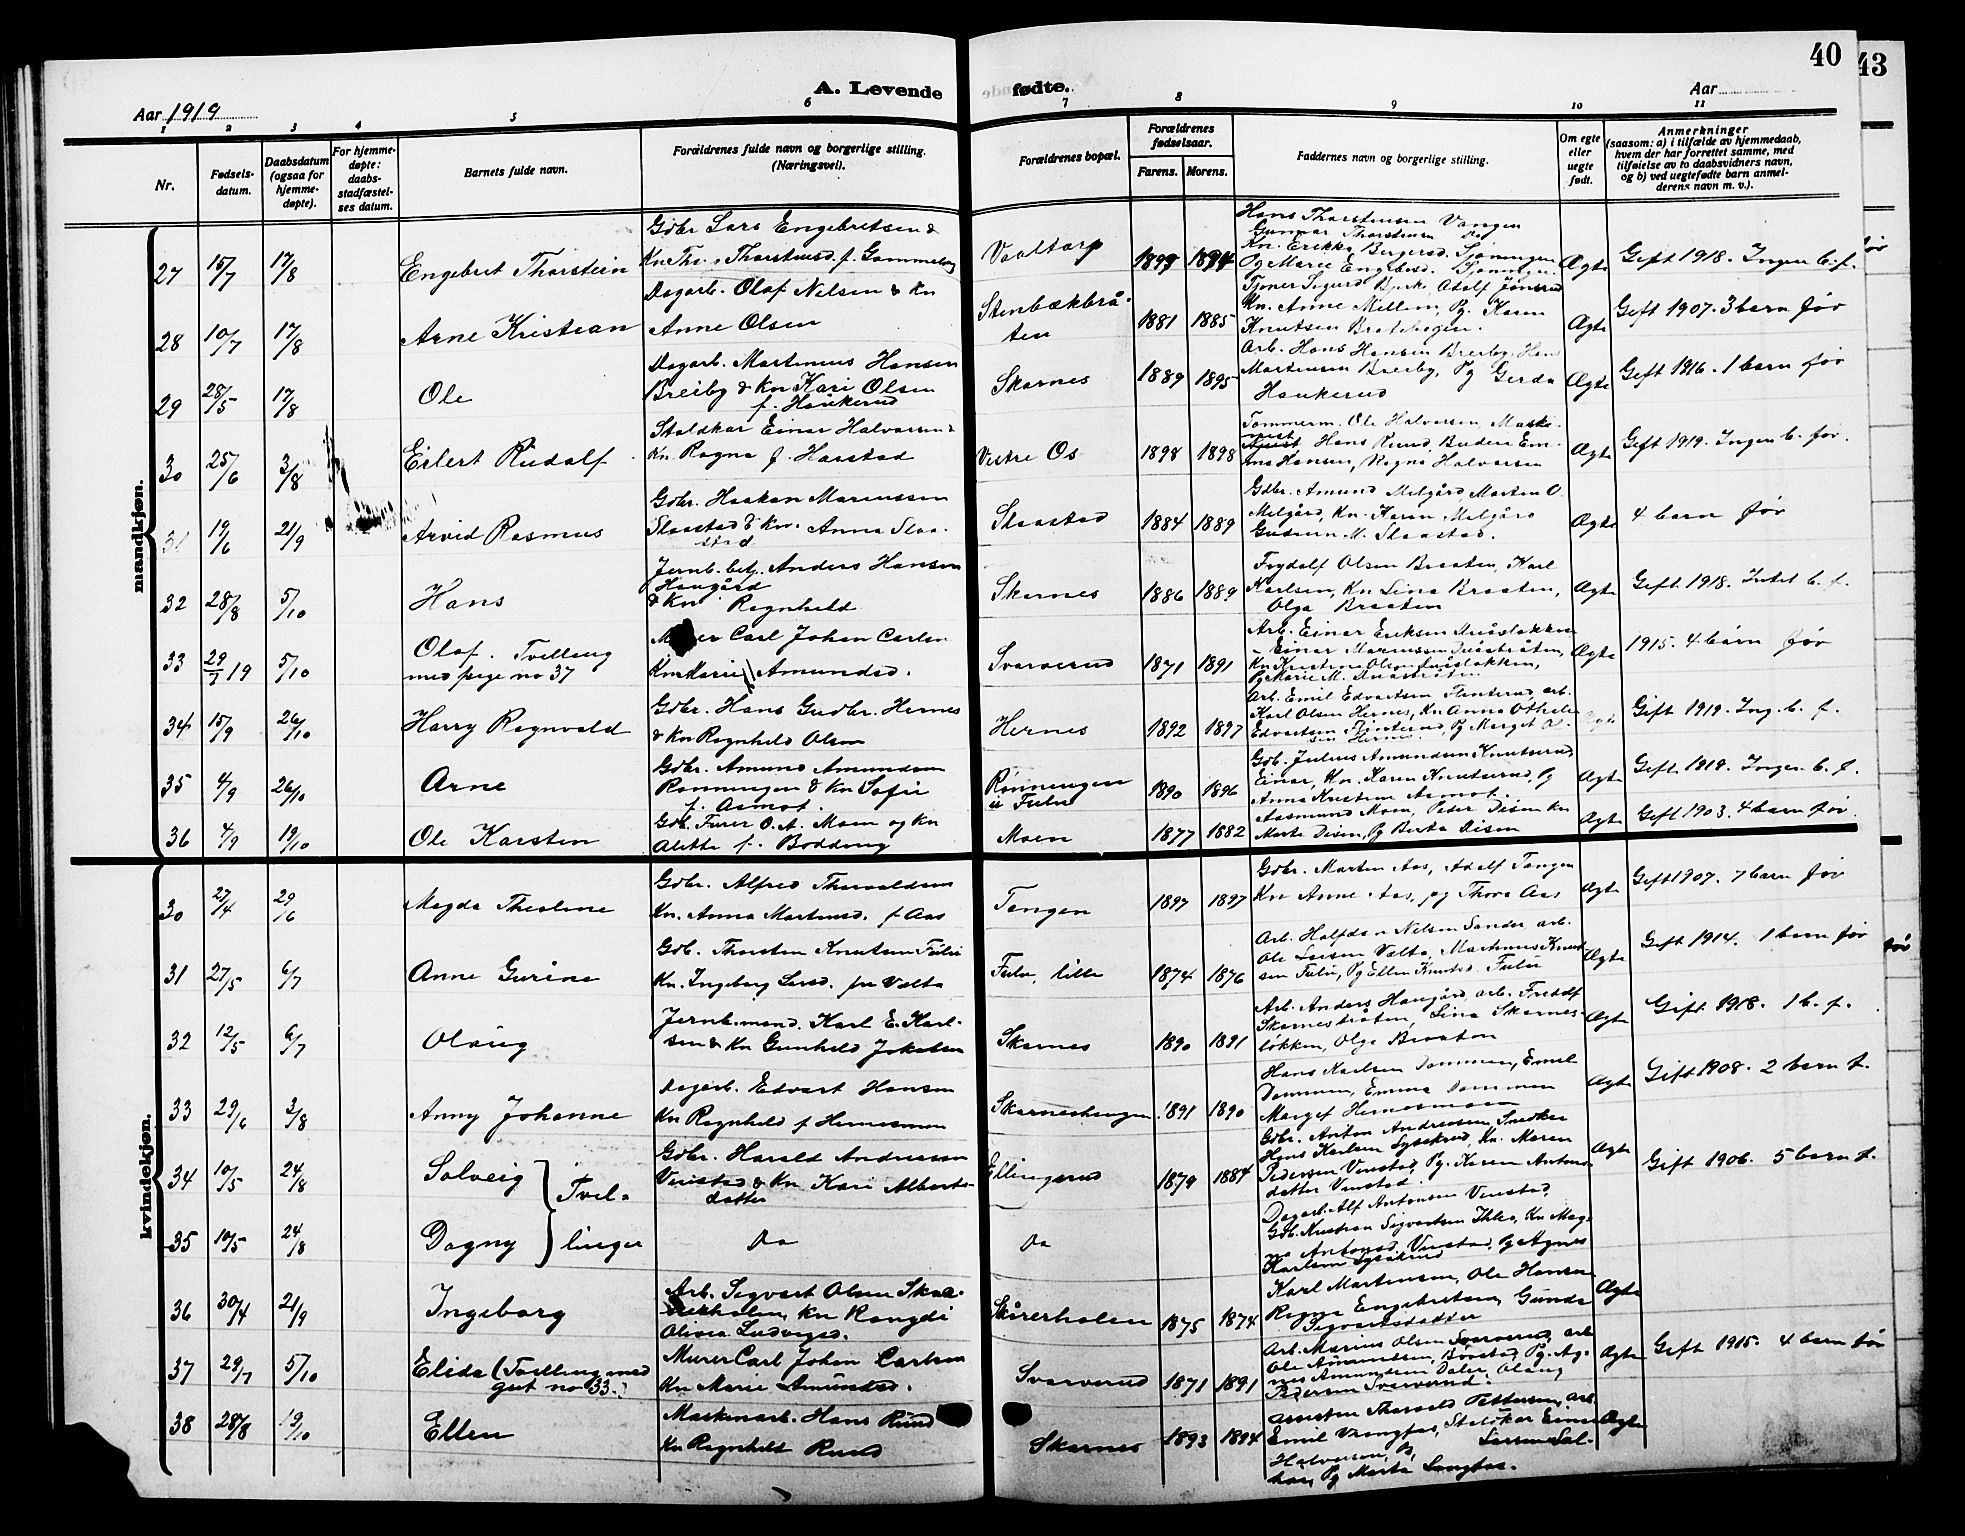 40
43
A. Levende fødte.
Aar 1919
Aar
1 2 3 4 5 6 7 8 9 10 11
Nr.
Fødsels-
datum.
Daabsdatum
(ogsaa for
hjemme-
døpte).
For hjemme-
døpte:
daabs-
stadfæstel-
ses datum.
Barnets fulde navn.
Forældrenes fulde navn og borgerlige stilling.
(Næringsvei).
Forældrenes bopæl.
Forældrenes
fødselsaar.
Farens. Morens.
Faddernes navn og borgerlige stilling.
Om egte
eller
uegte
født.
Anmerkninger
(saasom: a) i tilfælde av hjemmedaab,
hvem der har forrettet samme, med
tilføielse av to daabsvidners navn,
og b) ved uegtefødte barn anmel-
derens navn m. v.).
mandkjøn.
27 15/7 17/8 Engebret Thorstein
Gdbr Lars Engebretsen &
Kn Th. Thorstensd. f. Gammelsg
Vaaltorp 1894
Hans Thorstensen Vangen
Gunnar Thorstensen
Ægte Gift 1918. Ingen b. f.
28 10/7 17/8 Arne Kristian
Dagarb. Olaf Nilsen & Kn
Anne Olsen
Stenbækbrå-
ten 1881 1885
Kn. Anne Millem, Pg. Karen
Knutsen
Ægte Gift 1907. 3 barn før
29 28/5 17/8 Ole
Dagarb. Martinius Hansen
Breiby & Kn Kari Olsen
f. Haukerud
Skarnes 1889 1895
Arb. Hans Hansen Breiby, Hans
Martinsen Breiby, Pg Gerda
Haukerud
Ægte Gift 1916. 1 barn før
30 25/6 3/8 Eilert Rudolf
Staldkar Einar Halvorsen &
Kn Ragna f. Harstad
Vestre Os 1898 1898
Tømmerm. Ole Halvorsen, Maski-
nist Hans Ruud, Budeie Em-
ma Hansen, Ragna Halvorsen
Ægte Gift 1919. Ingen b. før.
31 19/6 21/9 Arvid Rasmus
Gdbr. Haakon Mariussen
Slaastad & Kn. Anna Slaa-
stad
Slaastad 1884 1889
Gdbr. Amund Melgård, Morten O
Melgård, Kn. Karen Melgård
Gudrun M. Slaastad.
Ægte 4 barn før
32 28/8 5/10 Hans
Jernb. betj. Anders Hansen
Haugård
& Kn Ragnhild
Skarnes 1886 1889
Frydolf Olsen Braaten, Karl
Karlsen, Kn Lina Braaten,
Olga Braaten
Ægte Gift 1918. Intet b. f.
33 29/7 19 5/10 Olaf. Tvilling
med pige no 37
Murer Carl Johan Carlsn
Kn Marie Amundsd.
Svarverud 1871 1891
Arb. Einar Eriksen
Ægte 1915. 4 barn før
34 15/9 26/10 Harry Ragnvald
Gdbr. Hans Gudbr. Hernes
& Kn Ragnhild Olsen
Hernes 1892 1897
Arb. Emil Edvartsen Flinterud, arb.
Karl Olsen Hernes, Kn Anna Othilie
Edvartsen Flinterud, Pg Margit Ol-
sen Hernes.
Ægte Gift 1919. Ing. b. f.
35 4/9 26/10 Arne
Gdbr. Amund Amundsen
Rønningen & Kn Sofie
f. Asmot.
Rønningen
u Fulu 1890 1896
Gdb. Julius Amundsen Knutserud,
Einar, Kn. Karen Knutserud, Pg
Anna Kristine Asmot.
Ægte Gift 1919. Ingen b. f.
36 4/9 19/10 Ole Karsten
Gdb. Furer O. A. Moen og Kn
Alette f. Bodding
Moen 1877 1882
Aasmund Moen, Peder Disen Kn
Marte Disen, Pg Berta Disen
Ægte Gift 1903. 4 barn før.
kvindekjøn.
30 27/4 29/6 Magda Theoline
Gdbr. Alfred Thorvaldsen
Kn. Anna Martinsd. f Aas
Tangen 1897 1897
Gdbr. Martin Aas, Adolf Tangen
Kn Anne Aas, pg Thora Aas
Ægte Gift 1907. 7 barn før
31 27/5 6/7 Anne Gurine
Gdb. Thorsten Knutsen Fulu
Kn. Ingeborg Larsd. fra Valta
Fulu, lille 1874 1876
Arb. Halfdan Nilsen Sander arb.
Ole Larsen Valta, Martinus Knut-
sen Fulu, Pg Ellen Knutsd. Fulu
Ægte Gift 1914. 1 barn før
32 12/5 6/7 Olaug
Jernb.mand. Karl E. Karl-
sen & Kn Gunhild Jokobsen
Skarnes 1890 1891
Arb. Anders Haugård, arb. Fritdf
Skarnesbråten, Lina Skarnes-
løkken, Olga Braaten
Ægte Gift 1918. 1 b. f.
33 29/6 3/8 Anny Johanne
Dagarb. Edvart Hansen
Kn Ragnhild f Hernesmoen
Skarneshagen 1891 1890
Hans Karlsen Dammen, Emil
Dammen, Emma Dammen
Margit Hernesmoen
Ægte Gift 1908. 2 barn f.
34 10/5 24/8 Solveig
Tvil-
Gdbr. Harald Andreassen
Vinstad & Kn Kari Alberts-
datter
Ellingsrud 1879 1884
Gdbr. Anton Andreassen, Snedker
Hans Karlsen Lysakrud, Kn. Maren
Pedersen Vinstad, Pg. Karen Antons-
datter Vinstad.
Ægte Gift 1906. 5 barn f.
35 10/5 24/8 Dagny
linger
Do Do
Dagarb. Alf Antonsen Vinstad,
Gdb. Kristian Sigvartsen Ihle, Kn Mag-
na Antonsd. Vinstad, Pg Agnes
Karlsen Lysakrud
36 30/4 21/9 Ingeborg
Arb. Sigvart Olsen Skaa-
rerholen Kn Rangdi
Olivia Ludvigsd.
Skårerholen 1875 1874
Karl Martensen, Ole Hansen
Ragna Engebretsen, Gunda
Sigvartsdatter
Ægte
37 29/7 5/10 Elida (Tvilling med
gut no 33.)
Murer Carl Johan Carlsen
Kn Marie Amundsd.
Svarverud 1871 1891
Arb. Marius Olsen Svarverud, arb
Ole Amundsen, Børstad, Pg. Ag-
nes Amundsen Daler, Olaug
Pedersen Svarverud.
Ægte Gift 1915. 4 barn før
38 28/8 19/10 Ellen
Maskinarb. Hans Ruud
Kn Ragnhild Ruud
Skarnes 1893 1894
Thorvald Pettersen, arb
Emil Vangfos, Staldkar Einar
Halvorsen,
Pg Marta Langfos.
Ægte
før
før